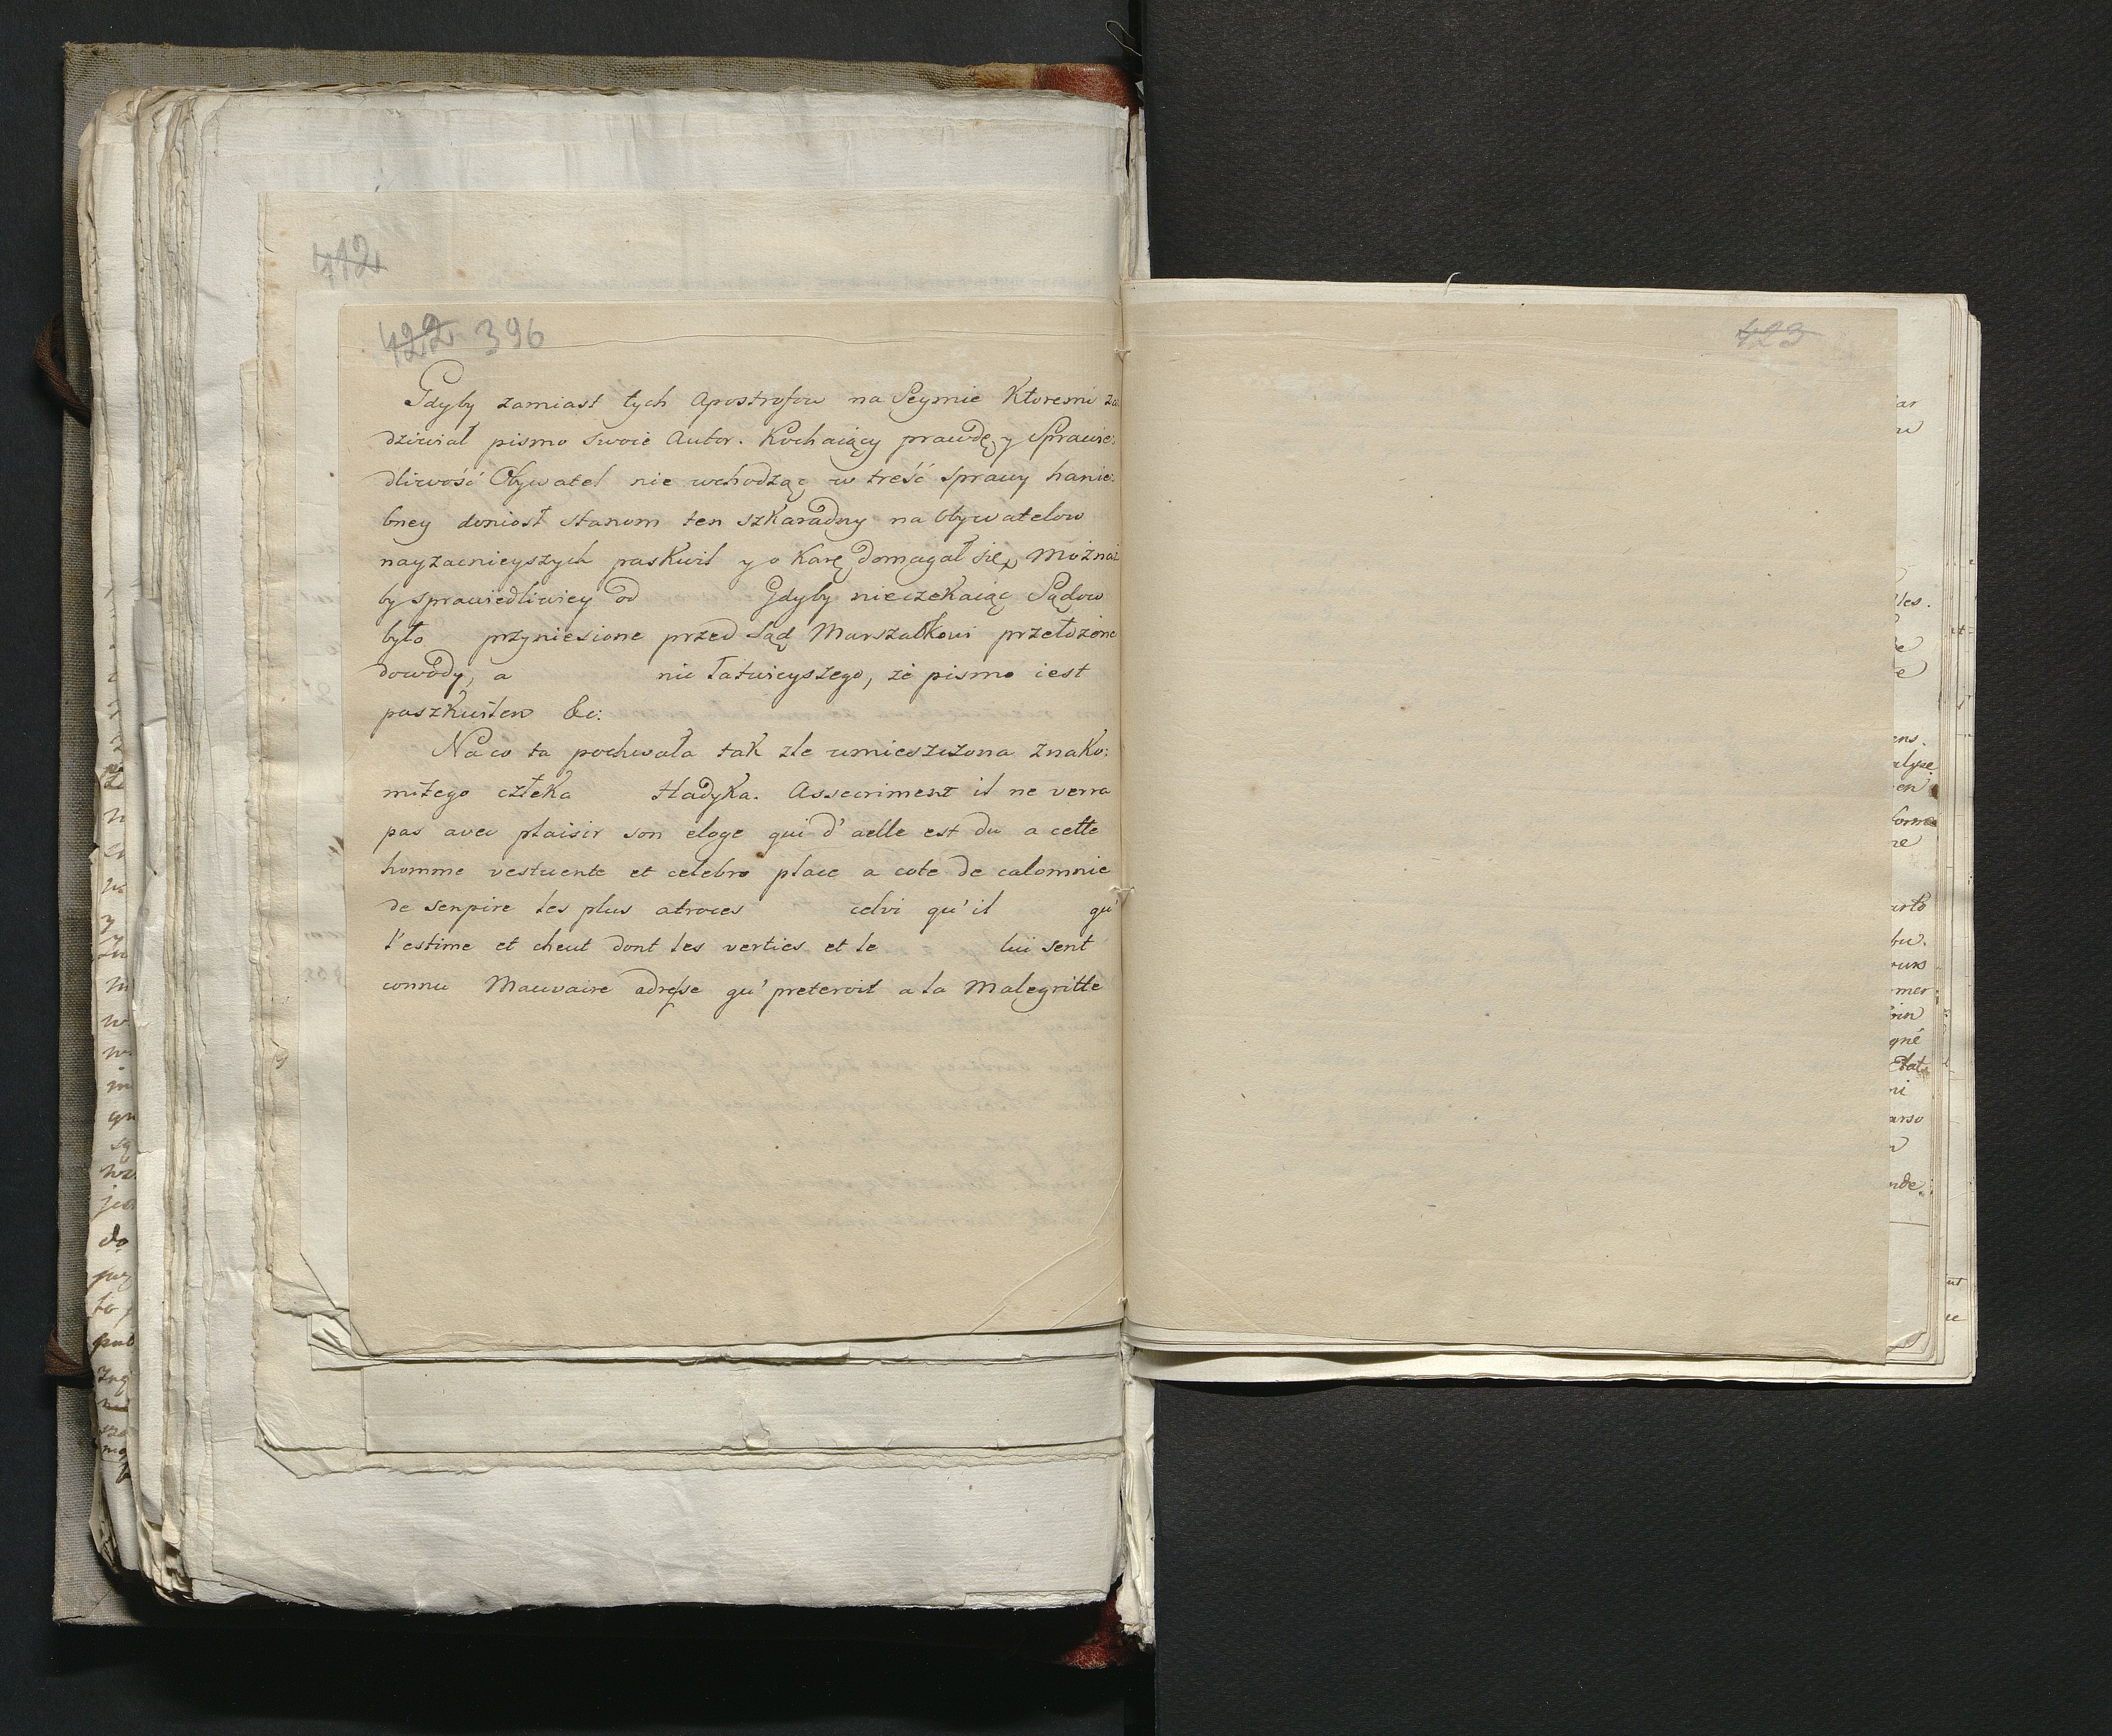 412
422 396
423
Gdyby zamiast tych Apostrofow na Seymie Ktoremi za
dziwiał pismo swoie Autor. Kochaiący prawdę y Sprawie:
dliwość Obywatel nie wchodząc w treść sprawy hanie:
bney doniosł stanom ten szkaradny na Obywatelow
nayzacnieyszych paskwil y o karę domagał się, Możnaż
by sprawiedliwiey od Gdyby nieczekaiąc Sądow
było przyniesione przed Sąd Marszałkowi przełożone
dowody, a nic łatwieyszego, że pismo iest
paszkwilem &c:
Na co ta pochwała tak zle umieszczona znako:
mitego człeka Hadyka. Assecriment il ne verra
pas avec plaisir son eloge qui d'aelle est du a cette
homme vestuente et celebre place a cote de calomnie
de senpire les plus atroces celvi qu'il qu'
l'estime et cheut dont les verties et le lui sent
connu Mauvaire adresse qu'preteroit a la Malegritte